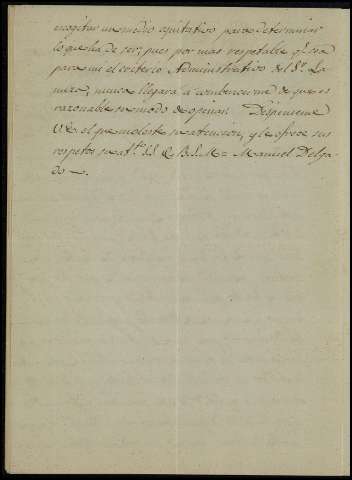 escogitar un medio equitativo para determinar
lo que ha de ser, pues por mas respetable qe. sea
para mi el criterio Administrativo del Sr. La
mera, nunca llegará a conbencerme de que es
razonable su modo de opinar. Dispenseme
V.E. el que moleste su atencion, y le ofrece sus
respetos su att.º S.S. Q. B. S. M. = Manuel Delga
do —.